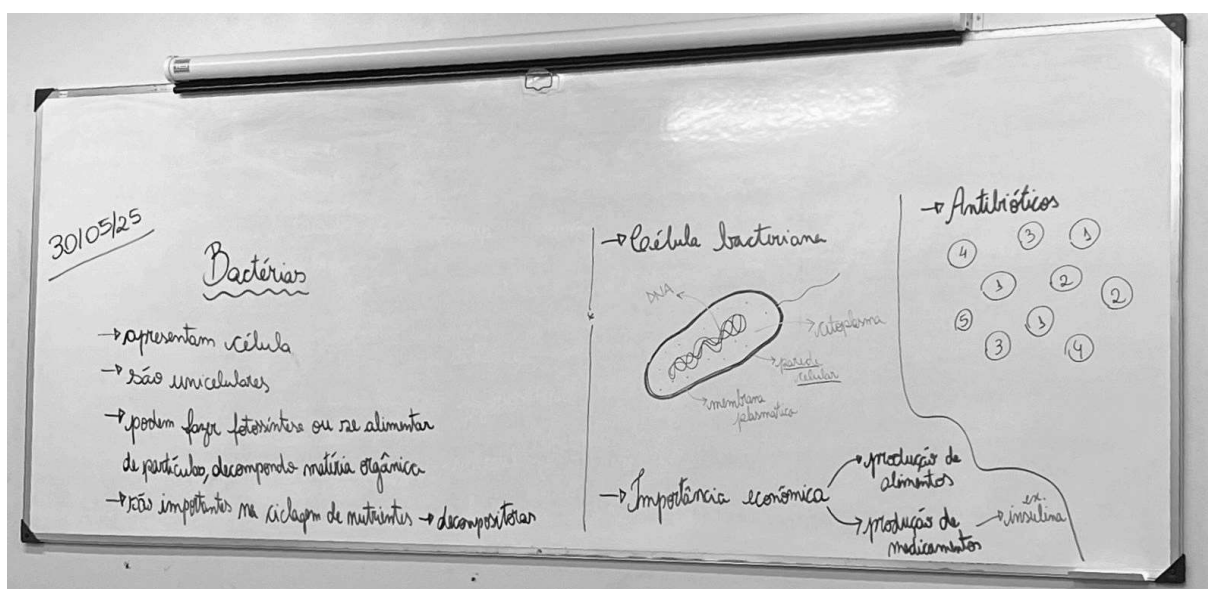 30/05/25
Bactérias
→ apresentam célula
→ são unicelulares
→ podem fazer fotossíntese ou se alimentar
de partículas, decompondo matéria orgânica
→ são importantes na ciclagem de nutrientes → decompositoras
→ Célula bacteriana
DNA
citoplasma
parede
celular
membrana
plasmática
→ Importância econômica
produção de
alimentos
produção de
medicamentos
→ ex.
insulina
→ Antibióticos
4 3 1
1 2 2
5 1
3 4